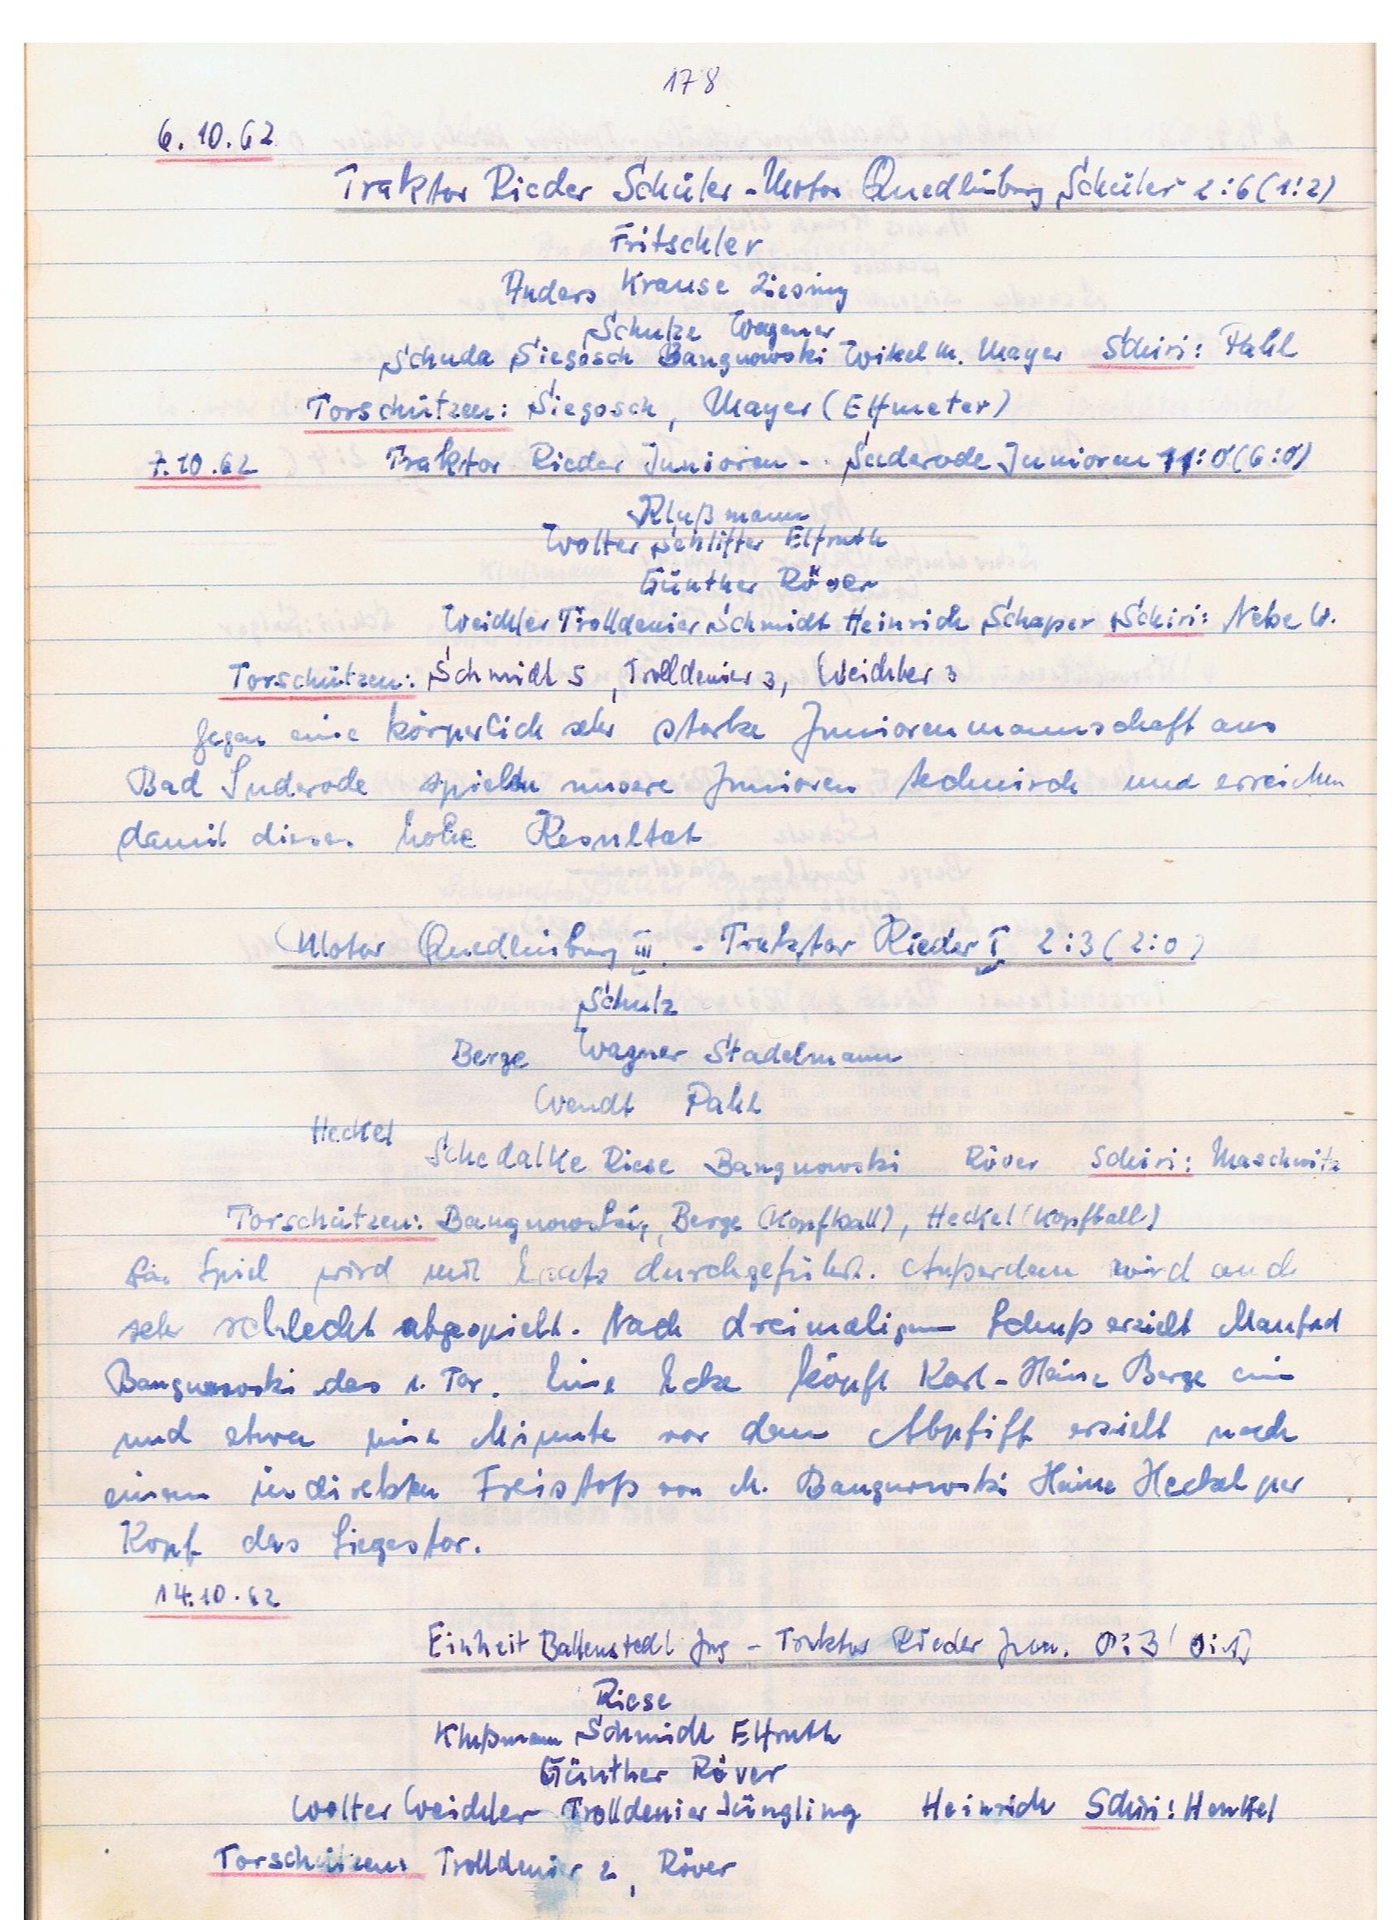 178
6.10.62
Traktor Rieder Schüler - Motor Quedlinburg Schüler 2:6 (1:2)
Fritschler
Anders Krause Ziesing
Schulze Wagener
Schuda Siegosch Bangnowski Wikel M. Mayer Schiri: Pahl
Torschützen: Siegosch, Mayer (Elfmeter)
7.10.62 Traktor Rieder Junioren - Suderode Junioren 11:0 (6:0)
Klußmann
Wolter Schlifter Elfruth
Günther Röver
Weichler Trolldenier Schmidt Heinrich Schaper Schiri: Nebe W.
Torschützen: Schmidt 5, Trolldenier 3, Weichler 3
Gegen eine körperlich sehr starke Juniorenmannschaft aus
Bad Suderode spielten unsere Junioren technisch und erreichen
damit dieses hohe Resultat
Motor Quedlinburg III - Traktor Rieder I 2:3 (2:0)
Schulz
Berge Wagner Stadelmann
Wendt Pahl
Heckel
Schedalke Riese Bangnowski Röver Schiri: Maschwitz
Torschützen: Bangnowski, Berge (Kopfball), Heckel (Kopfball)
Spiel wird mit durchgeführt. Außerdem wird auch
sehr schlecht abgespielt. Nach dreimaligem Schuß erzielt Manfred
Bangnowski das 1. Tor. Eine Ecke köpft Karl-Heinz Berge ein
und etwa eine Minute vor dem Abpfiff erzielt nach
einem indirekten Freistoß von M. Bangnowski Heinz Heckel per
Kopf das Siegestor.
14.10.62
Einheit Ballenstedt Jug - Traktor Rieder Jun. 0:3 0:1)
Riese
Klußmann Schmidt Elfruth
Günther Röver
Wolter Weichler Trolldenier Jüngling Heinrich Schiri: Henkel
Torschützen: Trolldenier 2, Röver